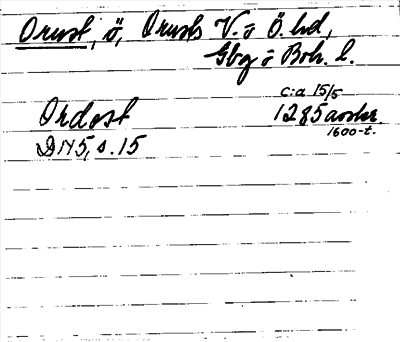 Orust, ö, Orusts V. o Ö. hd,
Gbg o Boh. l.
c:a 15/5
Ordost 1285 avskr.
1600-t.
DN 5, s. 15